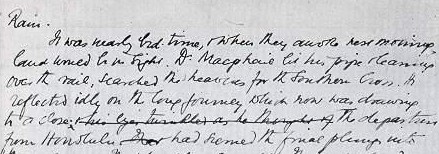 Rain.
It was nearly bed-time, & when they awoke next morning
land would be in sight. Dr Macphail lit his pipe & leaning
over the rail, searched the heavens for the Southern Cross. He
reflected idly on the long journey which now was drawing
to a close; his eyes twinkled as he thought of the departure
from Honolulu had seemed the final plunge into